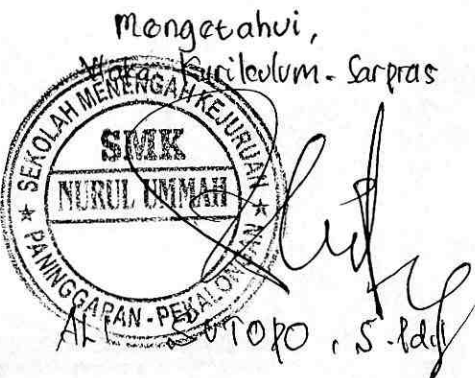 Mengetahui,
Waka Kurikulum - Sarpras
SEKOLAH MENENGAH KEJURUAN
SMK
NURUL UMMAH
PANINGGARAN - PEKALONGAN
SUTOPO, S.Pd